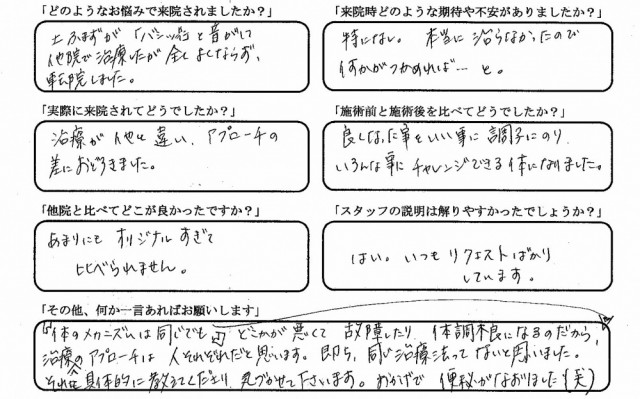 「どのようなお悩みで来院されましたか？」
土ふまずが「バシッ!!」と音がして
他院で治療したが全くよくならず、
転院しました。
「来院時どのような期待や不安がありましたか？」
特にない。本当に治らなかったので
何かがつかめれば…と。
「実際に来院されてどうでしたか？」
治療が他と違い、アプローチの
差におどろきました。
「施術前と施術後を比べてどうでしたか？」
良くなった事をいい事に調子にのり、
いろんな事にチャレンジできる体になりました。
「他院と比べてどこが良かったですか？」
あまりにもオリジナルすぎて
比べられません。
「スタッフの説明は解りやすかったでしょうか？」
はい。いつもリクエストばかり
しています。
「その他、何か一言あればお願いします」
体のメカニズムは同じでも、どこかが悪くて故障したり、体調不良になるのだから、
治療のアプローチは人それぞれだと思います。即ち、同じ治療法ってないと思いました。
それを具体的に教えてくださり、気づかせて下さいます。おかげで便秘がなおりました(笑)